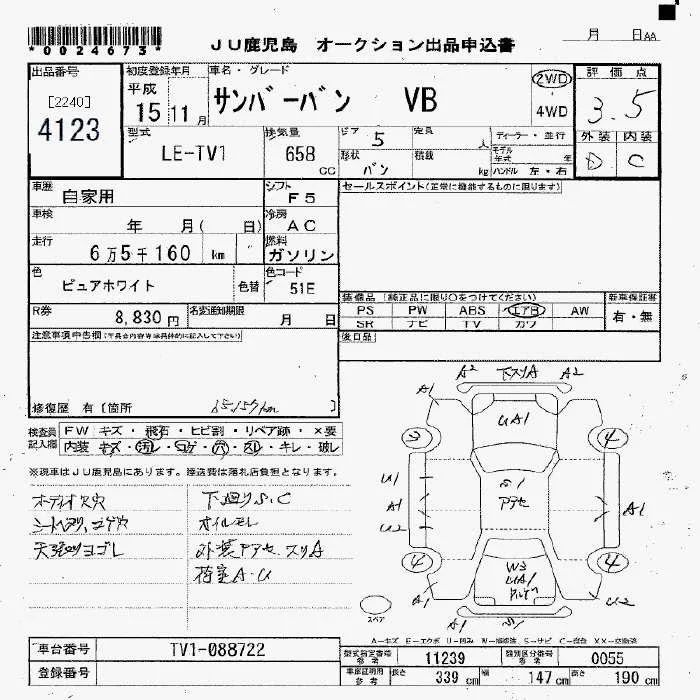 *0024673*
JU鹿児島 オークション出品申込書
月 日AA
出品番号
[2240]
4123
初度登録年月
平成
15 11月
車名・グレード
サンバーバン VB
2WD
4WD
評価点
3.5
外装 内装
D C
型式
LE-TV1
排気量
658 cc
ドア 5
定員 人
ディーラー・並行
モデル年式 年
形状 バン
積載 kg
ハンドル 左・右
車歴
自家用
シフト
F5
車検
年 月( 日)
冷房
AC
走行
6万5千160 km
燃料
ガソリン
色
ピュアホワイト
色替
色コード
51E
R券
8,830円
名変通知期限
月 日
セールスポイント(正常に機能するものに限ります)
装備品 (純正品に限り○をつけてください)
新車保証書
PS PW ABS エアB AW
有・無
SR ナビ TV カワ
後日品
注意事項申告欄
修復歴 有[箇所 ]
65159km
検査員記入欄
FW キズ・飛石・ヒビ割・リペア跡・×要
内装 キズ・汚レ・コゲ・穴・スレ・キレ・破レ
※現車はJU鹿児島にあります。陸送費は落札店負担となります。
オーディオ欠穴
シートヘタリ、コゲ穴
天張りヨゴレ
下廻りS.C
オイルモレ
外装アアセ スリA
荷室A.U
A2 下スリA A2
A1
UA1
3 4
U1
A1
U2
S1
アアセ
A1
W3
UA1
4 4
A1 U2
A1 S1
スペア
A-キズ E-エクボ U-凹み W-補修跡 S-サビ C-腐食 XX-交換済
車台番号 TV1-088722
登録番号
型式指定番号 参考 11239
類別区分番号 参考 0055
車庫証明用 参考 長さ 339cm 幅 147cm 高さ 190cm